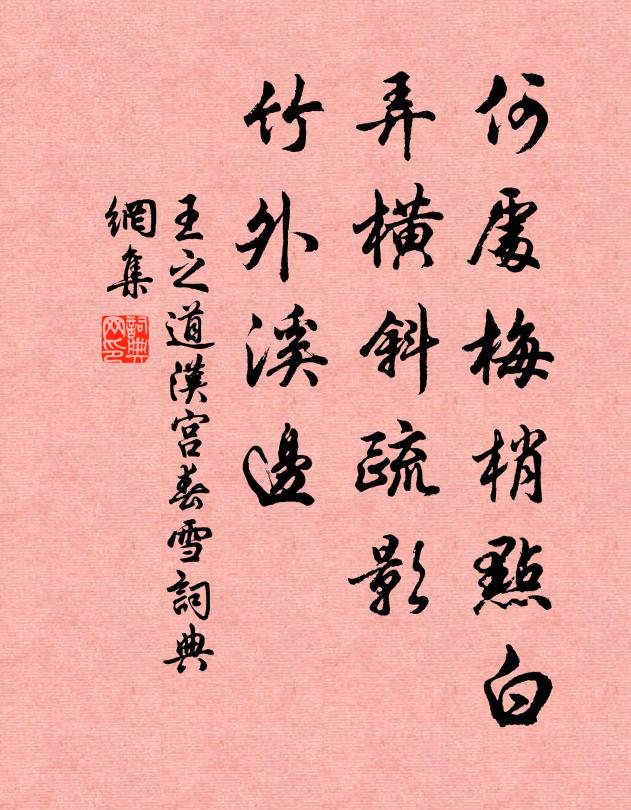 何處梅梢點白
弄橫斜疏影
竹外溪邊
王之道漢宮春雪詞典
網集
詞典
网印